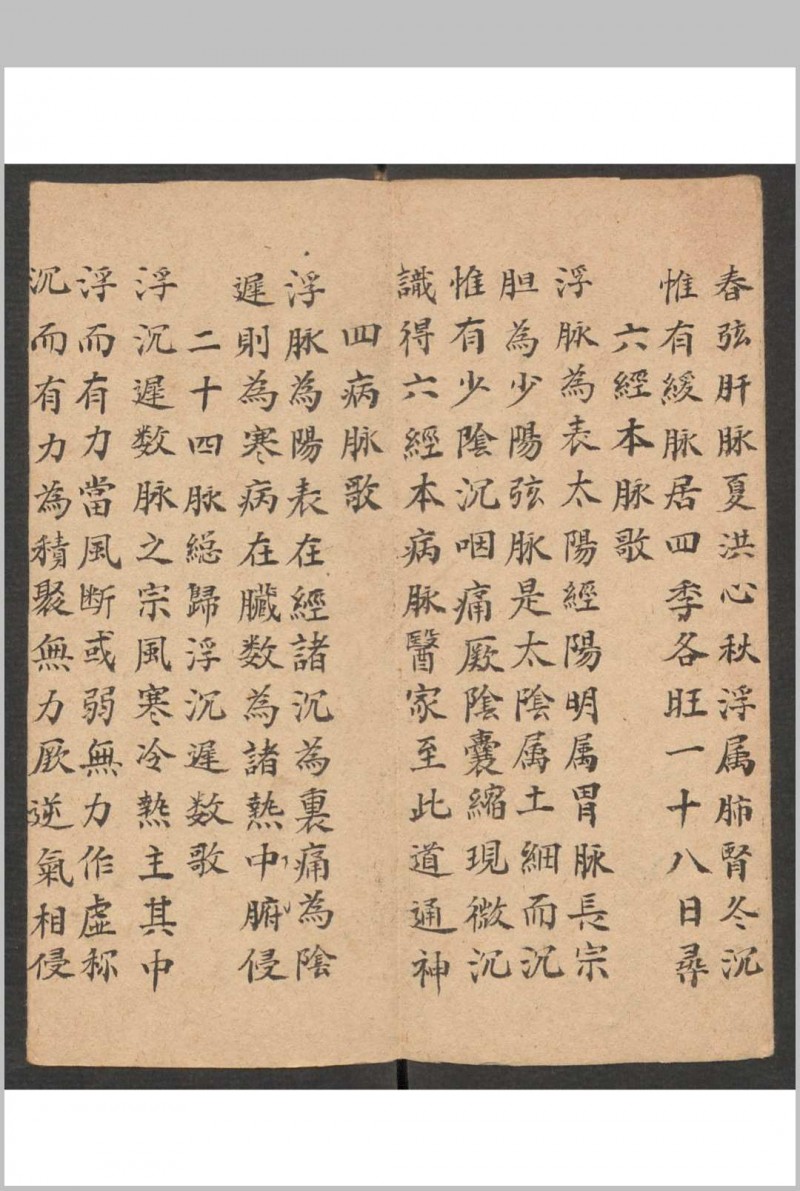 春弦肝脉夏洪心秋浮属肺腎冬沉
惟有緩脉居四季各旺一十八日尋
六經本脉歌
浮脉為表太陽經陽明属胃脉長宗
胆為少陽弦脉是太陰属土細而沉
惟有少陰沉咽痛厥陰囊縮現微沉
識得六經本病脉醫家至此道通神
四病脉歌
浮脉為陽表在經諸沉為裏痛為陰
遲則為寒病在臟数為諸熱中腑侵
二十四脉緫歸浮沉遲数歌
浮沉遲数脉之宗風寒冷熱主其中
浮而有力當風断或弱無力作虛称
沉而有力為積聚無力厥逆氣相侵